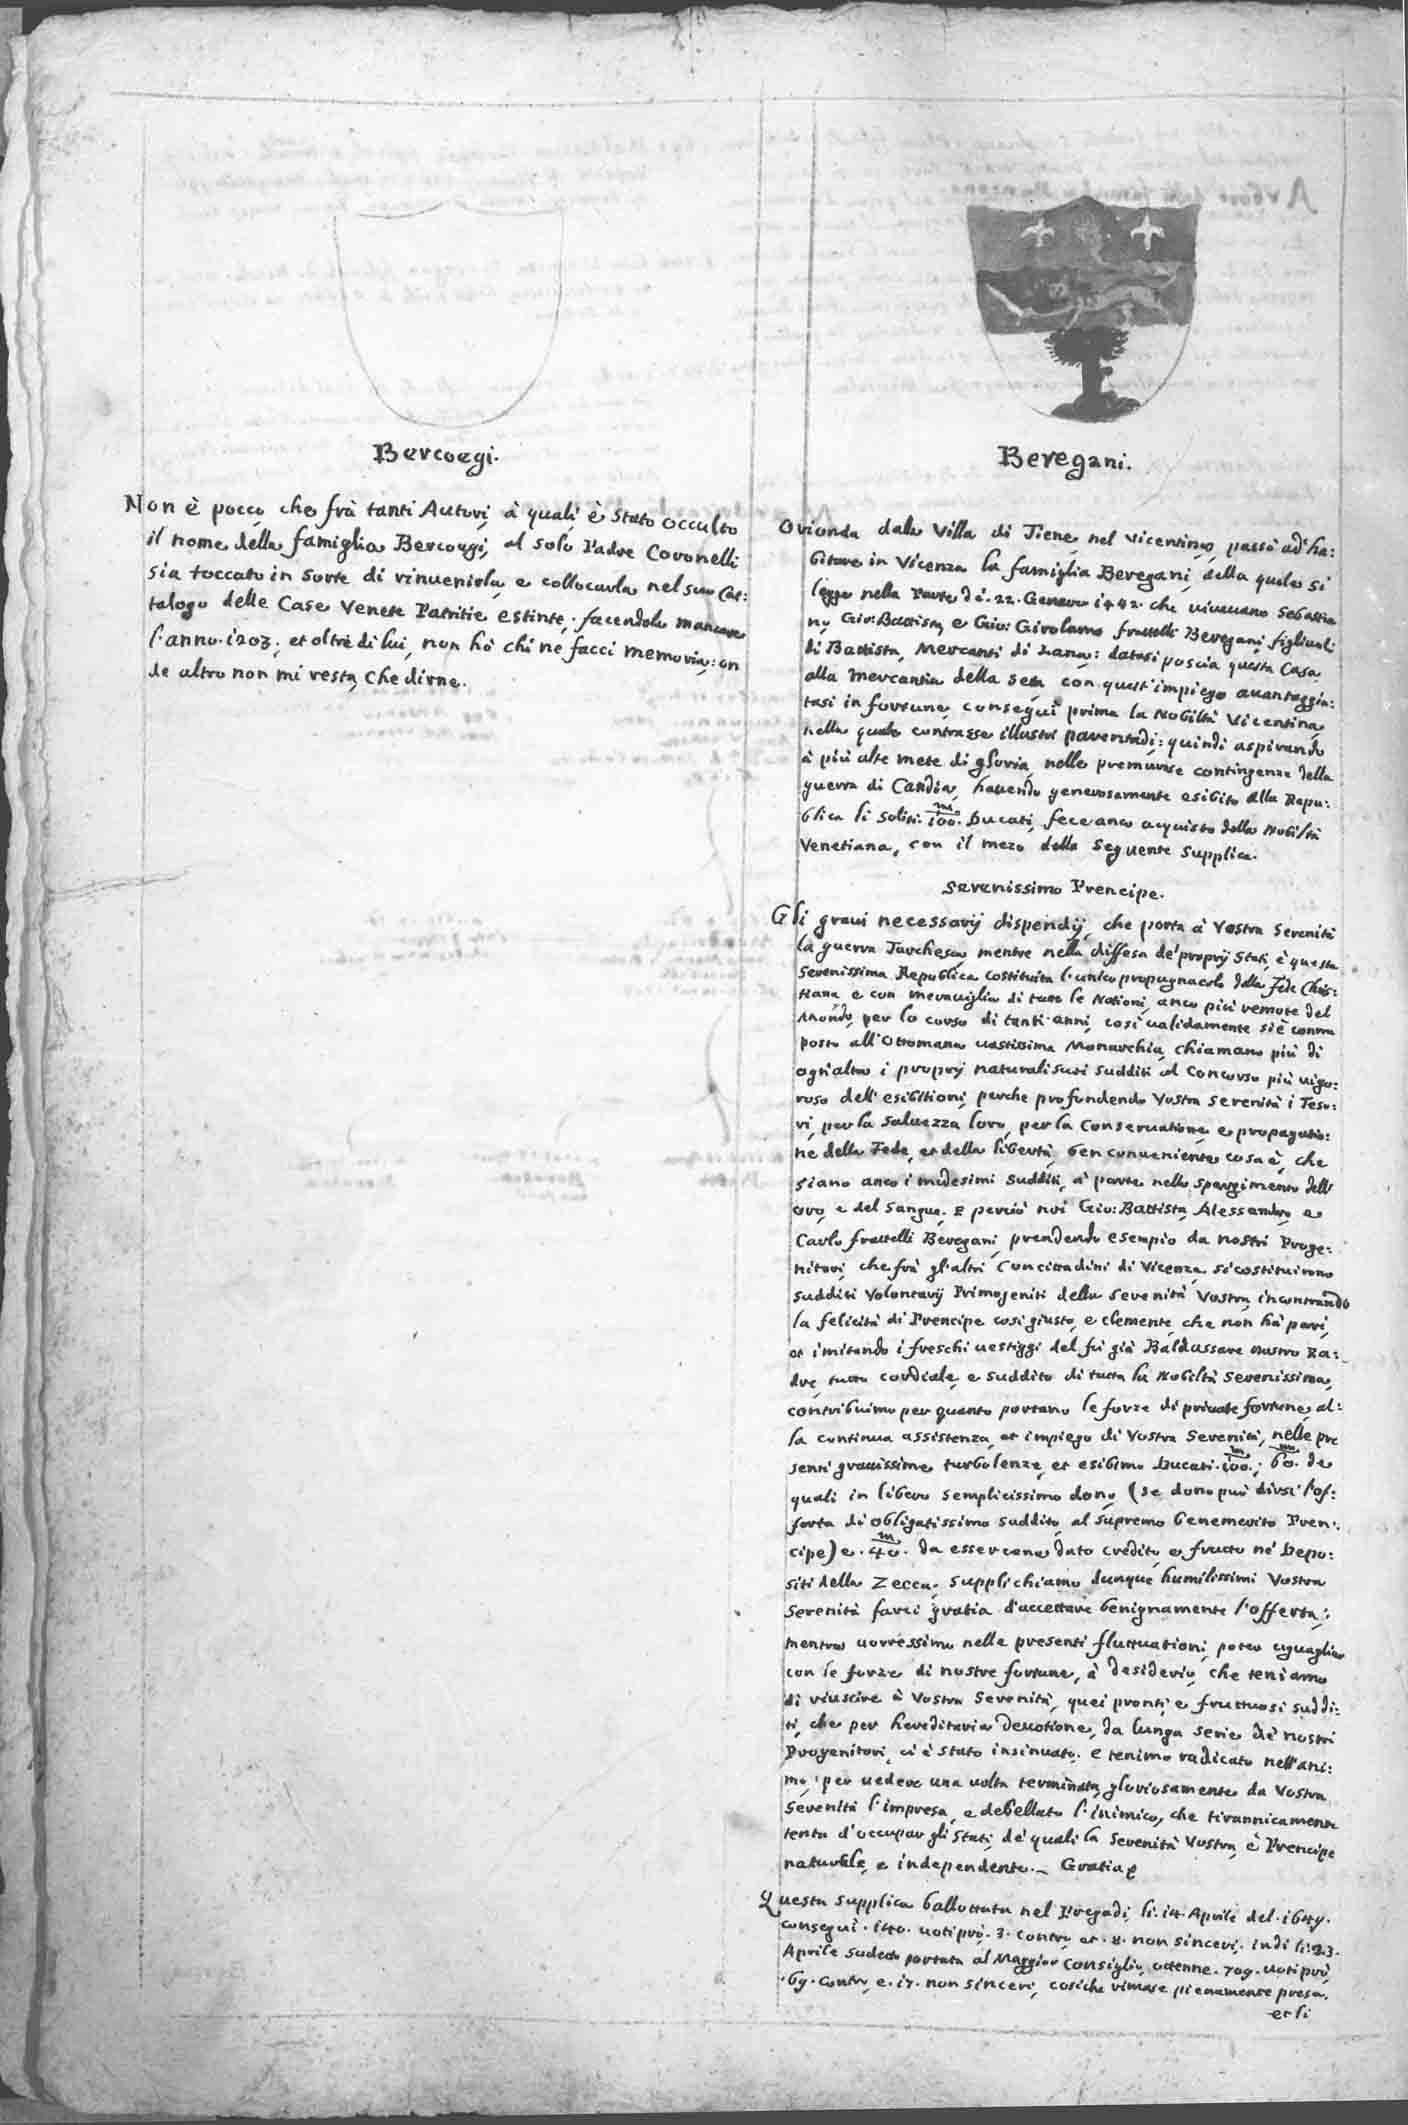 Bercoegi.
Non è pocco, che frà tanti Autori, à quali è stato occulto
il nome della famiglia Bercoegi, al solo Padre Coronelli
sia toccato in sorte di rinuenirla, e collocarla nel suo Cat:
talogo delle Case Venete Patritie estinte, facendola mancare
l'anno 1203; et oltre di lui, non hò chi ne facci memoria: on
de altro non mi resta, che dirne.
Beregani.
Orionda dalla Villa di Tiene, nel Vicentino, passò ad ha:
bitare in Vicenza la famiglia Beregani, della quale si
legge nella Parte dì .22. Genaro 1442. che viueuano Sebastia
no, Gio: Battista, e Gio: Girolamo fratelli Beregani, figliuoli
di Battista, Mercanti di Lana: datasi poscia questa Casa
alla Mercantia della seta con quest'impiego auantaggia:
tasi in fortune, consegui prima la Nobiltà Vicentina,
nella quale contrasse illustri parentadi: quindi aspirando
à più alte mete di gloria, nelle premurose contingenze della
guerra di Candia, hauendo generosamente esibito alla Repu:
blica li soliti .100.m Ducati, fece anco acquisto della Nobiltà
Venetiana, con il mezo della seguente supplica.
Serenissimo Prencipe.
Gli graui necessarij dispendij, che porta à Vostra Serenità
la guerra Turchesca, mentre nella diffesa de' proprij Stati, è questa
Serenissima Republica costituita l'unico propugnacolo della Fede Chris:
tiana, e con merauiglia di tutte le Nationi, anco più remote del
Mondo, per lo corso di tanti anni, così ualidamente si è contra
posta all'Ottomana uastissima Monarchia, chiamano più di
ogn'altro i proprij naturali suoi sudditi al Concorso più uigo:
roso dell'esibitioni, perche profondendo Vostra Serenità i Teso:
ri, per la saluezza loro, per la Conseruatione, e propagatio:
ne della Fede, et della libertà, ben conueniente cosa è, che
siano anco i medesimi sudditi, à parte nello spargimento dell'
oro, e del sangue. E perciò noi Gio: Battista, Alessandro, e
Carlo fratelli Beregani, prendendo esempio da nostri Proge:
nitori, che frà gl'altri Concittadini di Vicenza, si costituirono
sudditi Volontarij Primogeniti della Serenità Vostra, incontrando
la felicità di Prencipe così giusto, e clemente, che non hà pari,
et imitando i freschi uestiggi del fù già Baldassare nostro Pa:
dre, tutto cordiale, e suddito di tutta la Nobiltà Serenissima,
contribuimo per quanto portano le forze di priuate fortune, al:
la continua assistenza, et impiego di Vostra Serenità, nelle pre
senti grauissime turbolenze, et esibimo Ducati .100.m; 60.m de
quali in libero semplicissimo dono, (se dono può dirsi l'of:
ferta di obligatissimo suddito, al supremo benemerito Pren:
cipe) e .40.m da essercene dato credito, e frutto ne' Depo:
siti della Zecca. Supplichiamo dunque humilissimi Vostra
Serenità farci gratia d'accettare benignamente l'offerta;
mentre uorressimo nelle presenti fluttuationi, poter uguagliar
con le forze di nostre fortune, à desiderio, che teniamo
di riuscire à Vostra Serenità, quei pronti, e fruttuosi suddi:
ti, che per hereditaria deuotione, da lunga serie de' nostri
Progenitori, ci è stato insinuato, e tenimo radicato nell'ani:
mo, per uedere una uolta terminata, gloriosamente da Vostra
Serenità l'impresa, e debellato l'inimico, che tirannicamente
tenta d'occupar gli Stati, de' quali la Serenità Vostra, è Prencipe
naturale, e independente. Gratia
Questa supplica ballottata nel Pregadi, li .14. Aprile del .1649.
consegui .140. uoti prò, .3. contro, et .8. non sinceri; indi li .23.
Aprile sudetto portata al Maggior Consiglio, ottenne .709. uoti prò,
.69. contro, e .17. non sinceri, cosiche rimase pienamente presa.
et li